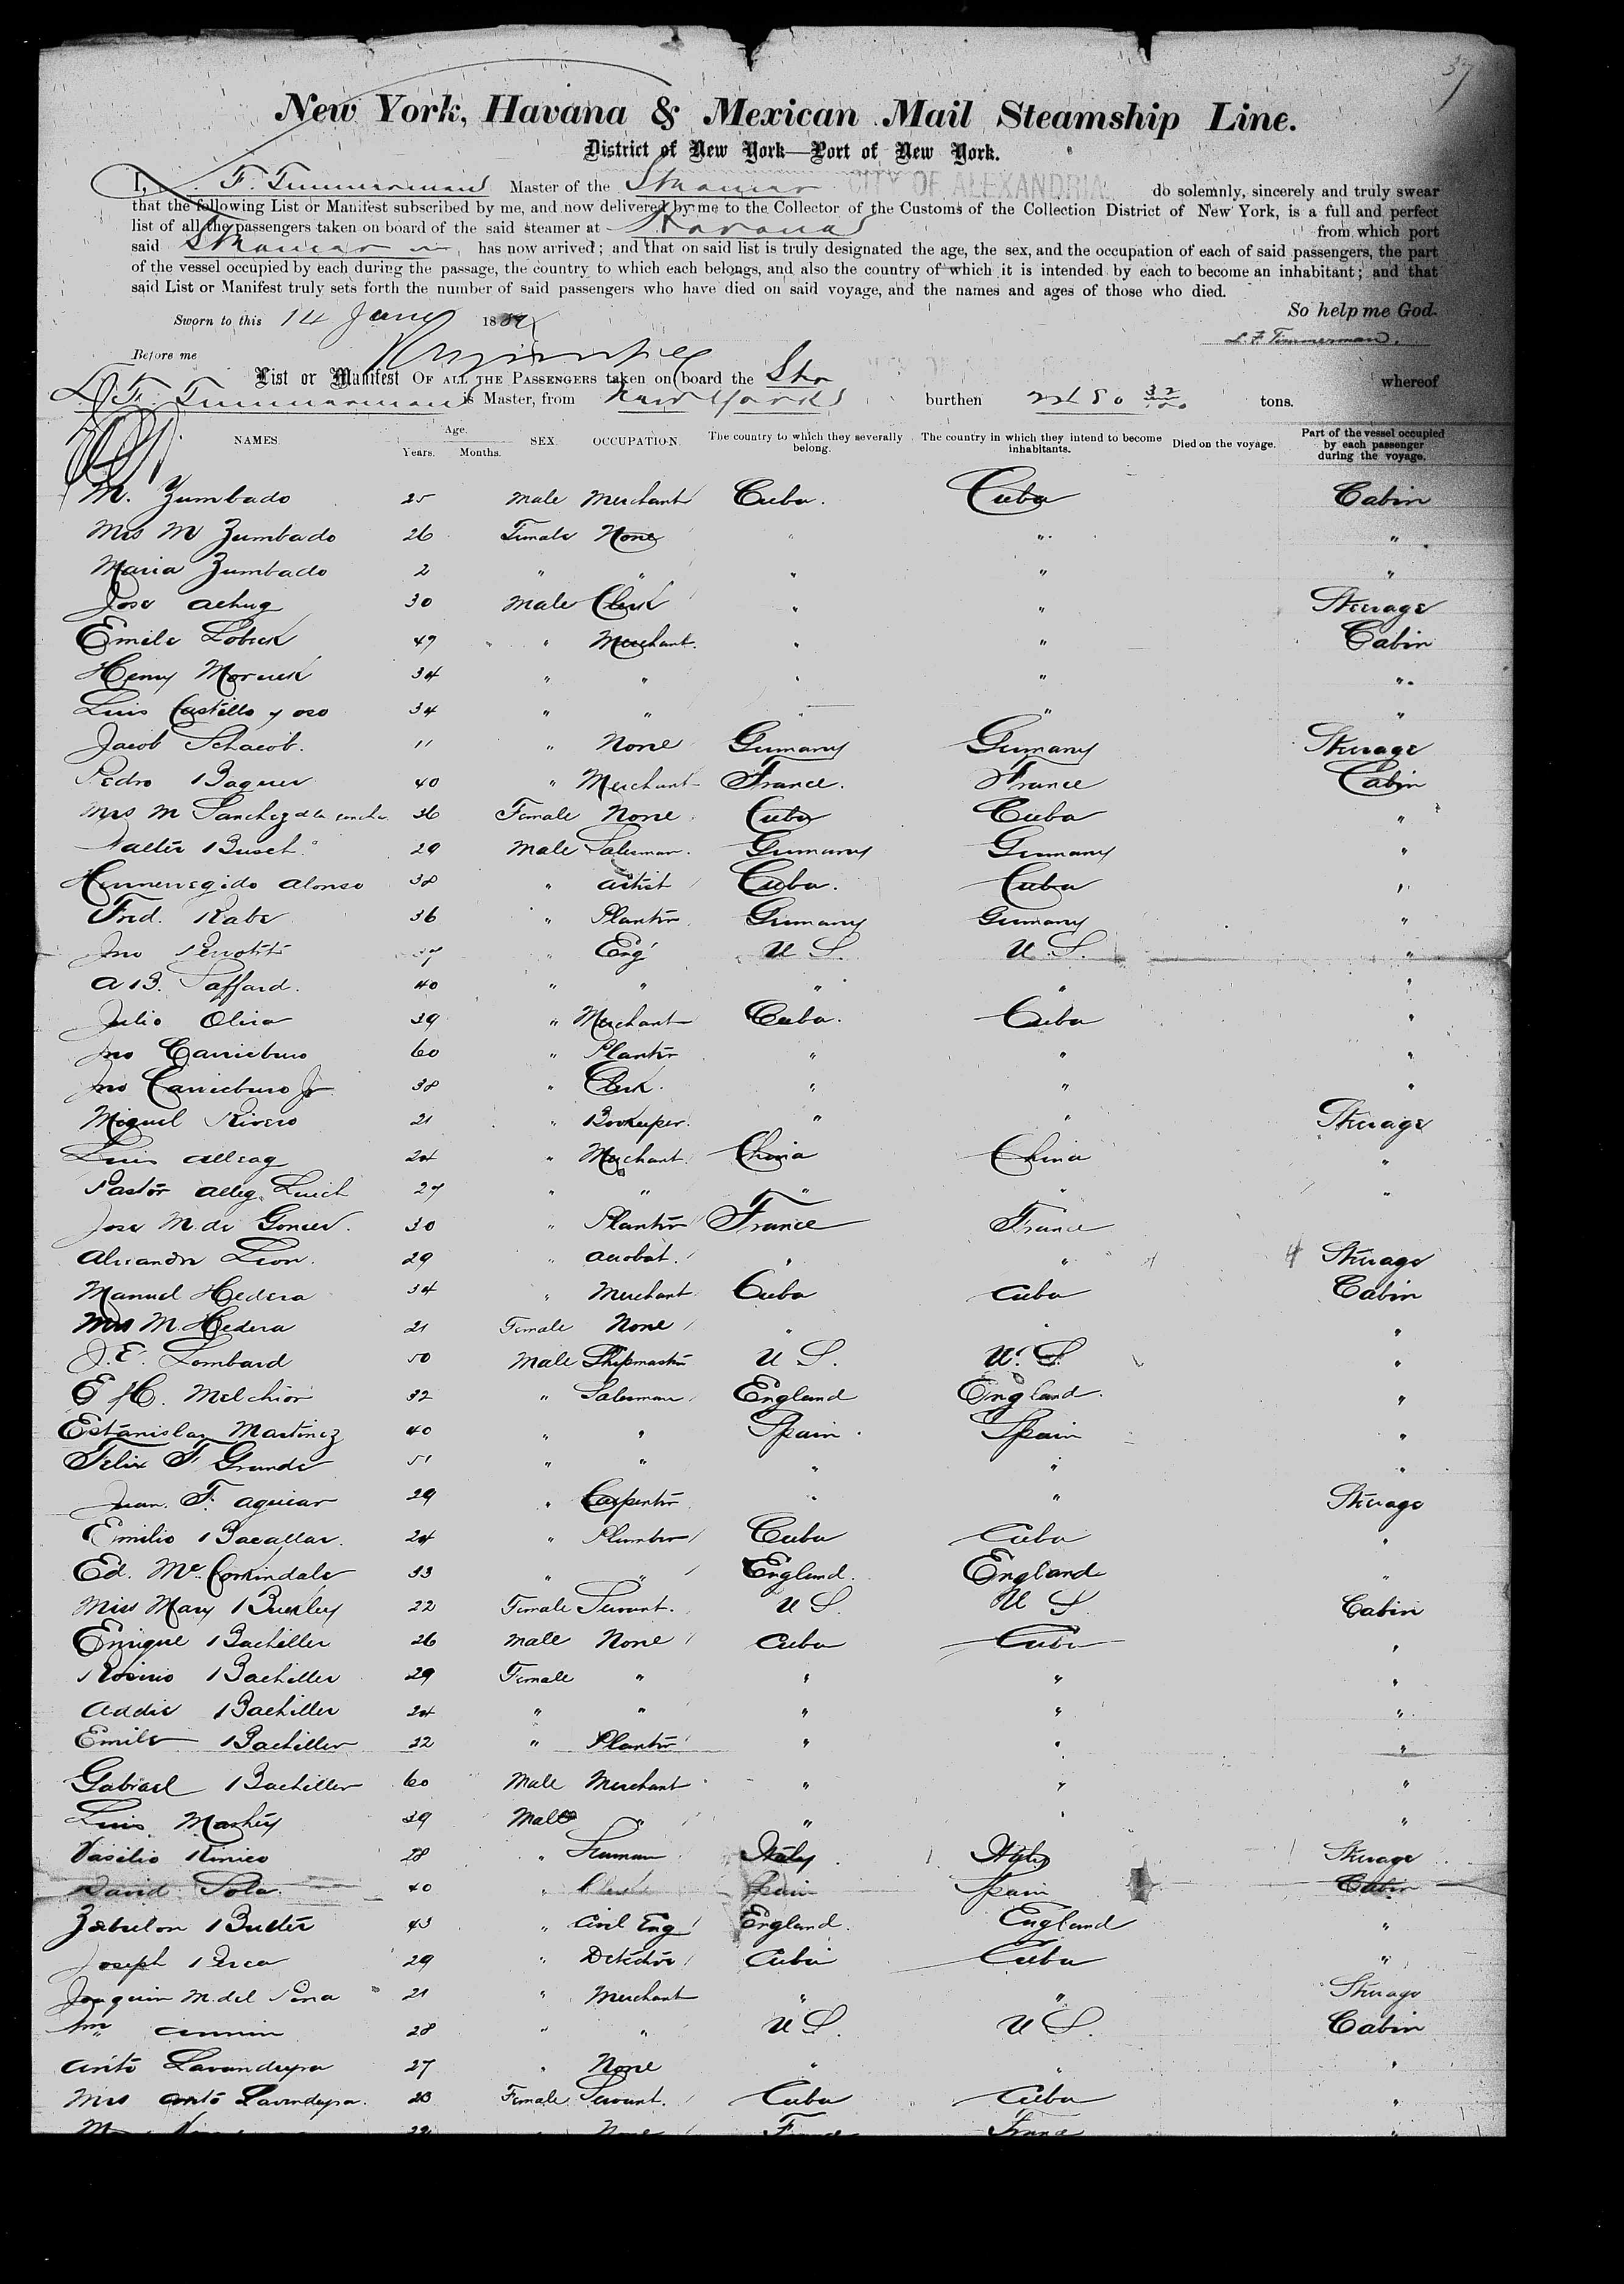 37
New York, Havana & Mexican Mail Steamship Line.
District of New York—Port of New York.
I, F. Timmerman Master of the Steamer CITY OF ALEXANDRIA do solemnly, sincerely and truly swear
that the following List or Manifest subscribed by me, and now delivered by me to the Collector of the Customs of the Collection District of New York, is a full and perfect
list of all the passengers taken on board of the said steamer at Havana from which port
said Steamer has now arrived; and that on said list is truly designated the age, the sex, and the occupation of each of said passengers, the part
of the vessel occupied by each during the passage, the country to which each belongs, and also the country of which it is intended by each to become an inhabitant; and that
said List or Manifest truly sets forth the number of said passengers who have died on said voyage, and the names and ages of those who died.
So help me God.
Sworn to this 14 June 188
L. F. Timmerman.
Before me
List or Manifest OF ALL THE PASSENGERS taken on board the Str whereof
L. F. Timmerman is Master, from New York burthen 2480 32/100 tons.
NAMES. Age. Years. Months. SEX. OCCUPATION. The country to which they severally belong. The country in which they intend to become inhabitants. Died on the voyage. Part of the vessel occupied by each passenger during the voyage.
M. Zumbado 25 Male Merchant Cuba. Cuba Cabin
Mrs M Zumbado 26 Female None " " "
Maria Zumbado 2 " " " " "
Jose 30 Male Clerk " " Steerage
Emile 49 " Merchant. " " Cabin
Henry 34 " " " " "
Luis Castillo y oso 34 " " " " "
Jacob Schacob. 11 " None Germany Germany Steerage
Pedro Baguer 40 " Merchant France. France Cabin
Mrs M Sanchez de la concha 36 Female None Cuba Cuba "
Busch 29 Male Salesman. Germany Germany "
Alonso 38 " Artist Cuba. Cuba "
Fred. Rabe 36 " Planter Germany Germany "
Jno " Eng U S. U. S. "
A B. Saffard. 40 " " " " "
Julio Oliva 39 " Merchant Cuba. Cuba "
Jno Carricburo 60 " Planter " " "
Jno Carricburo Jr 38 " Clerk. " " "
Miguel Rivero 21 " Bookeeper. " " Steerage
Luis 24 " Merchant. China China "
Pastor 27 " " " " "
Jose M. de 30 " Planter France France
Alexandre Leon. 29 " Acrobat. " " Steerage
Manuel Hedera 34 " Merchant Cuba Cuba Cabin
Mrs M. Hedera 21 Female None " " "
J. E. Lombard 50 Male Shipmaster U S. U. S. "
E H. Melchior 32 " Salesman England England. "
Estanislao Martinez 40 " " Spain. Spain "
Felix F Grande 51 " " " " "
Juan. F. Aguiar 29 " Carpenter " " Steerage
Emilio Bacallar. 24 " Plumber Cuba Cuba "
Ed. Mc. Corkindale 33 " " England. England "
Miss Mary 22 Female Servant. U S. U S Cabin
Enrique Bachiller 26 Male None Cuba Cuba "
Rosirio Bachiller 29 Female " " " "
Addie Bachiller 24 " " " " "
Emile Bachiller 32 " Planter " " "
Gabriel Bachiller 60 Male Merchant " " "
Luis 39 Male " " " "
Vasilio 28 " Seaman Italy Italy Steerage
David Sola. 40 " Spain Spain Cabin
Zebulon Butler 43 " Civil Eng England. England "
Joseph 29 " Detective Cuba Cuba "
Joaquin M. del Pena 21 " Merchant " " Steerage
Wm 28 " " U S. U S. Cabin
Anto Lavandeyra 27 " None " " "
Mrs Anto Lavandeyra. 23 Female Servant. Cuba Cuba "